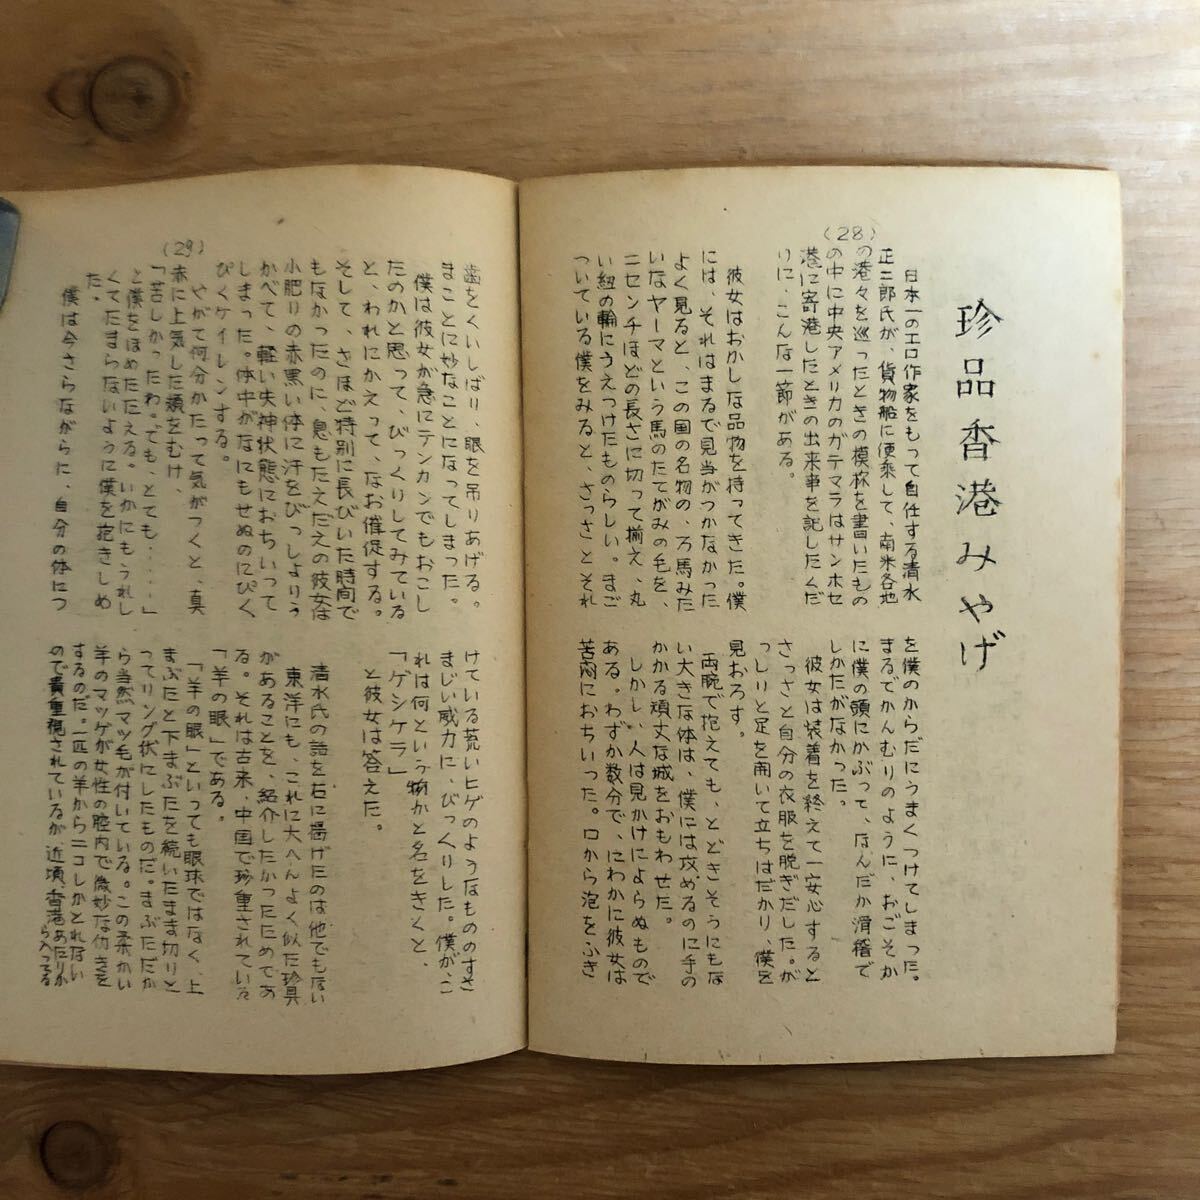 珍品香港みやげ
(28)
日本一のエロ作家をもって自任する清水
正二郎氏が、貨物船に便乗して、南米各地
の港々を巡ったときの模様を書いたもの
の中に中央アメリカのガテマラはサンホセ
港に寄港したときの出来事を記したくだ
りに、こんな一節がある。
彼女はおかしな品物を持ってきた。僕
には、それはまるで見当がつかなかった
よく見ると、この国の名物の、ろ馬みた
いなヤーマという馬のたてがみの毛を、
二センチほどの長さに切って揃え、丸
い紐の輪にうえつけたものらしい。まご
ついている僕をみると、さっさとそれ
を僕のからだにうまくつけてしまった。
まるでかんむりのように、おごそか
に僕の頭にかぶって、なんだか滑稽で
しかたがなかった。
彼女は装着を終えて一安心すると
さっさと自分の衣服を脱ぎだした。が
っしりと足を開いて立ちはだかり、僕を
見おろす。
両腕で抱えても、とどきそうにもな
い大きな体は、僕には攻めるのに手の
かかる頑丈な城をおもわせた。
しかし、人は見かけによらぬもので
ある。わずか数分で、にわかに彼女は
苦悶におちいった。口から泡をふき
(29)
歯をくいしばり、眼を吊りあげる。
まことに妙なことになってしまった。
僕は彼女が急にテンカンでもおこし
たのかと思って、びっくりしてみている
と、われにかえって、なお催促する。
そして、さほど特別に長びいた時間で
もなかったのに、息もたえだえの彼女は
小肥りの赤黒い体に汗をびっしょりう
かべて、軽い失神状態におちいって
しまった。体中がなにもせぬのにぴく
ぴくケイレンする。
やがて何分かたって気がつくと、真
赤に上気した頬をむけ、
「苦しかったわ。でも、とても・・・・・」
と僕をほめたたえる。いかにもうれし
くてたまらないように僕を抱きしめ
た。
僕は今さらながらに、自分の体につ
けている荒いヒゲのようなもののすさ
まじい威力に、びっくりした。僕が、こ
れは何という物かと名をきくと、
「ゲシケラ」
と彼女は答えた。
清水氏の話を右に掲げたのは他でもない
東洋にも、これに大へんよく似た珍具
があることを、紹介したかったためであ
る。それは古来、中国で珍重されている
「羊の眼」である。
「羊の眼」といっても眼球ではなく、上
まぶたと下まぶたを続いたまま切りと
ってリング状にしたものだ。まぶただか
ら当然マツ毛が付いている。この柔かい
羊のマツゲが女性の腔内で微妙な働きを
するのだ。一匹の羊から二コしかとれない
ので貴重視されているが、近頃、香港あたりか
ら入ってる